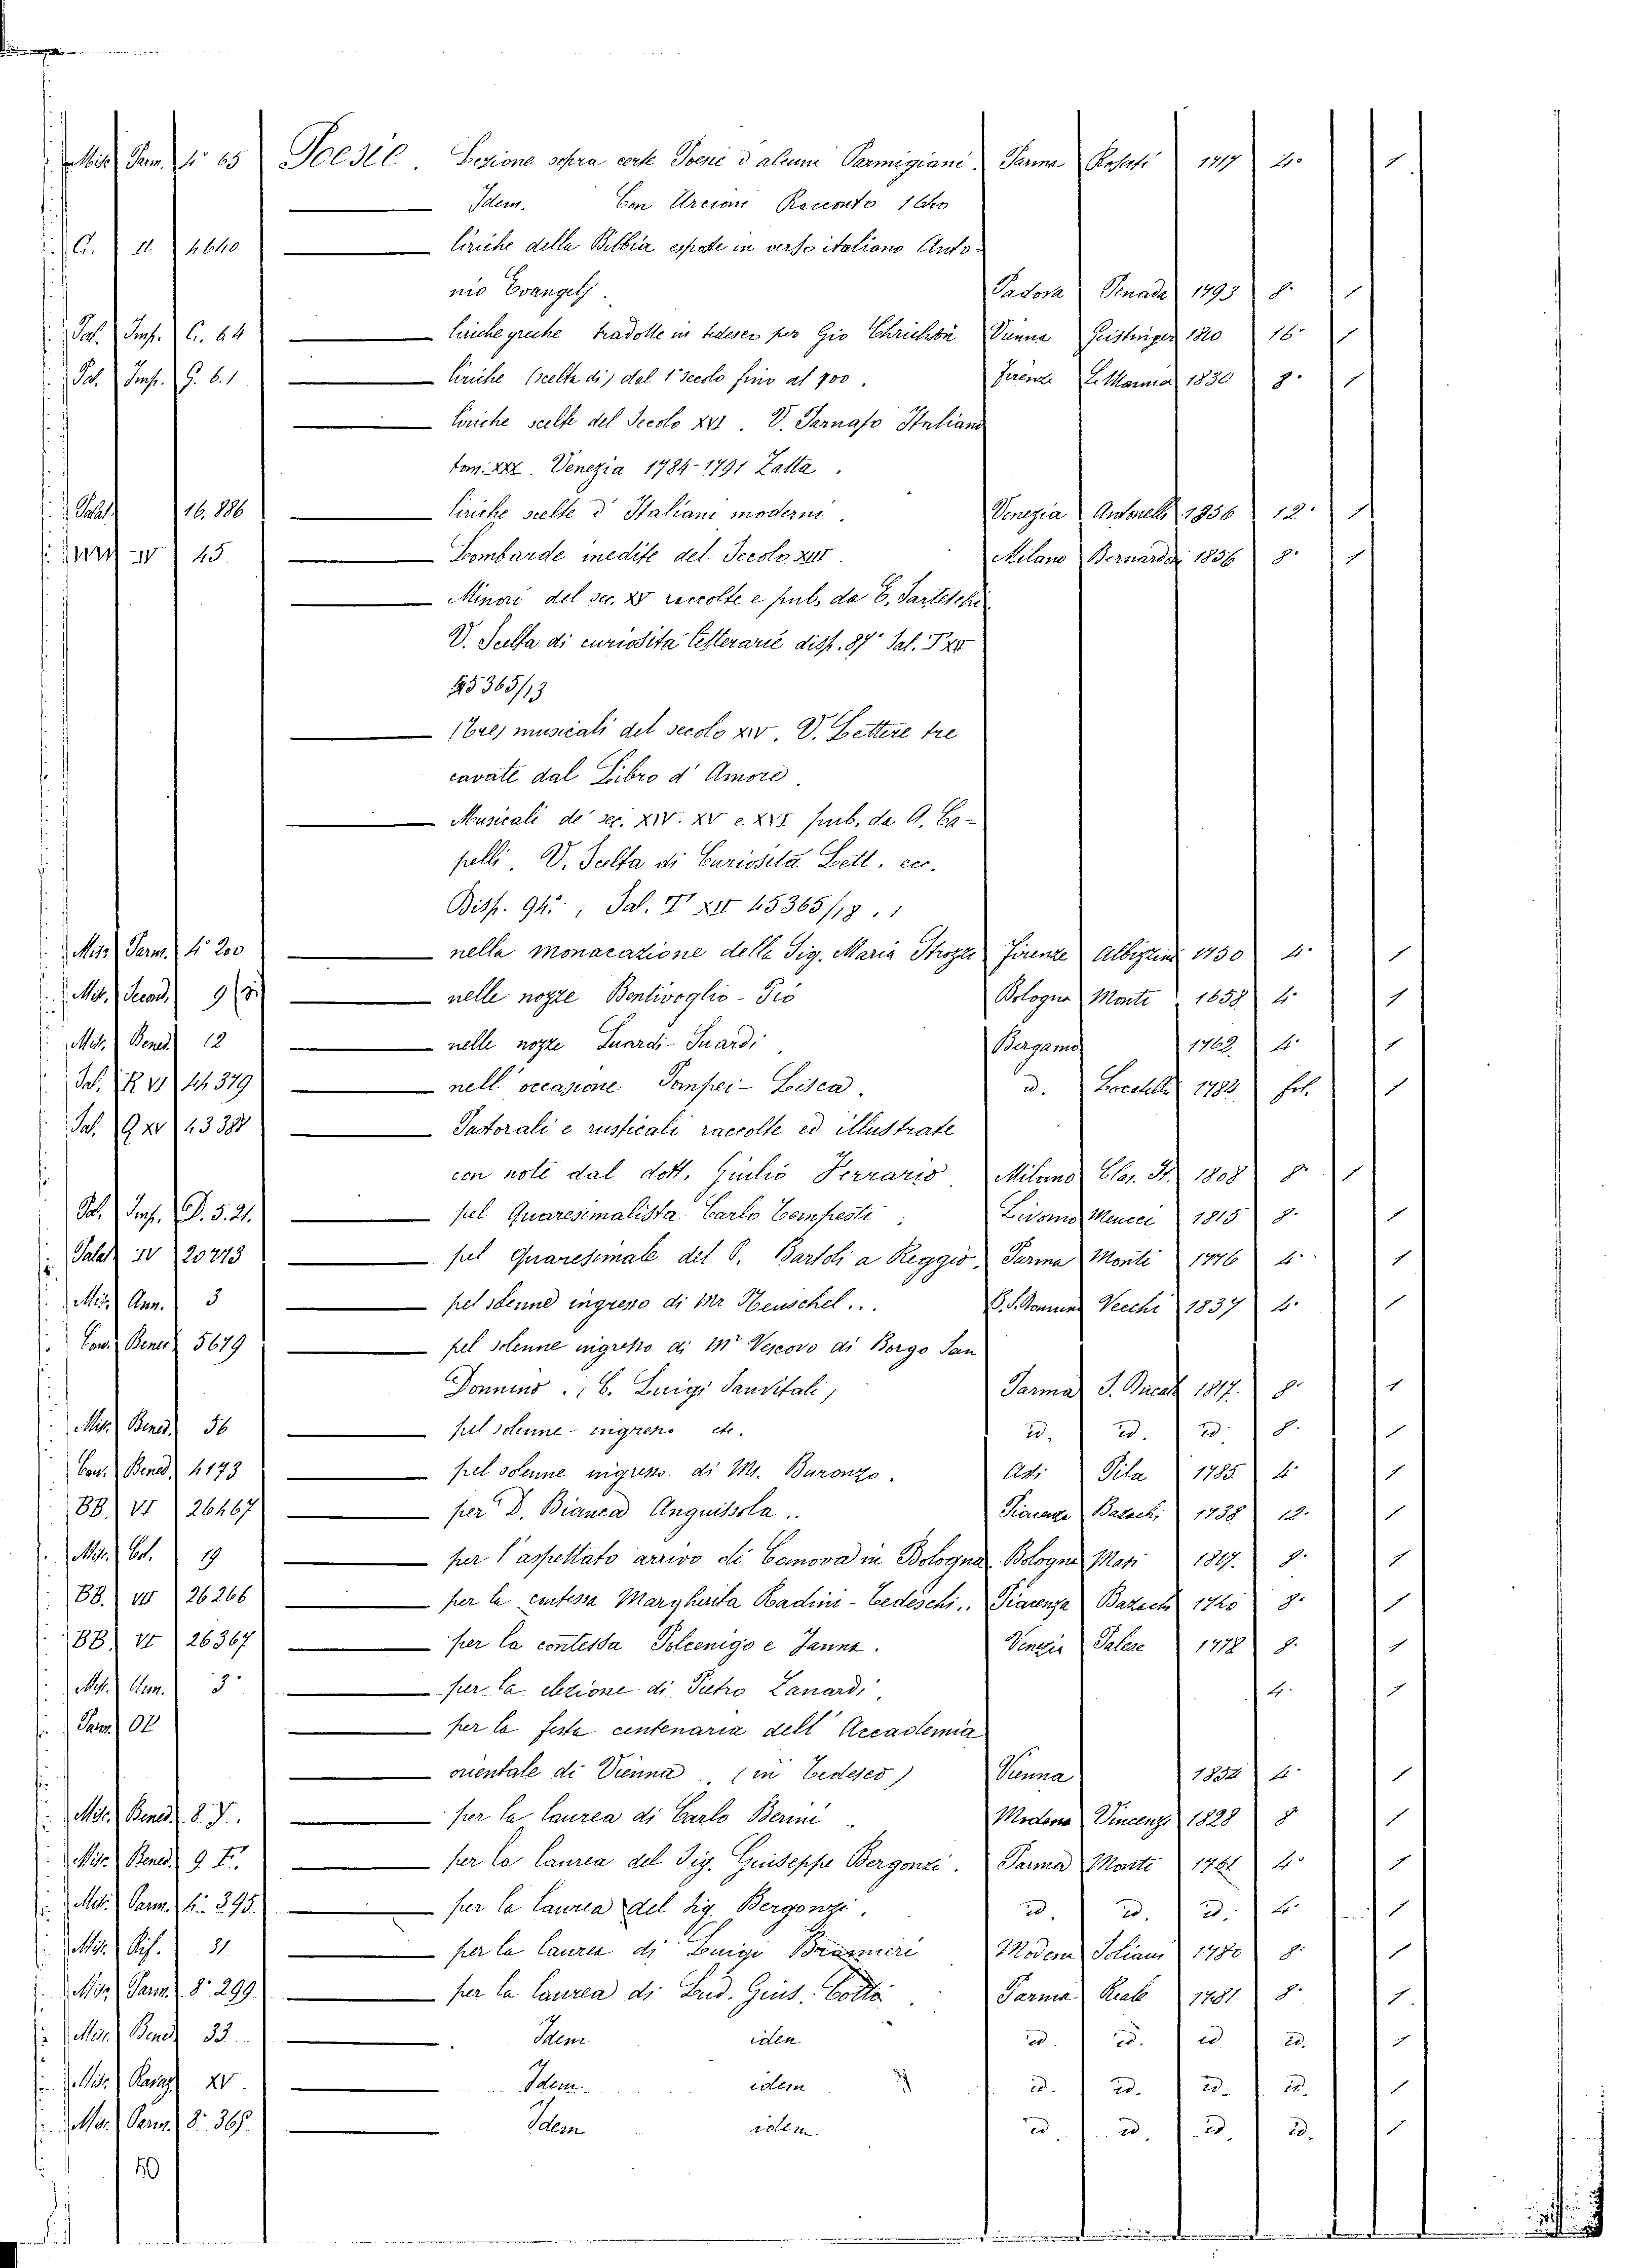 Misc. Parm. 4° 65 Poesie. Lezione sopra certe Poesie d'alcuni Parmigiani. Parma Rosati 1717 4° 1
Idem. Con Urcioni Racconto
C. II 4640 liriche della Bibbia esposte in verso italiano Anto-
nio Evangelj. Padova Penada 1793 8° 1
Pal. Imp. C. 64 liriche greche tradotte in tedesco per Gio Vienna Geistinger 1810 16° 1
Pal. Imp. G. 6. 1 liriche (scelta di) dal 1° secolo fino al 700. Firenze Le Monnier 1830 8° 1
liriche scelte del Secolo XVI. V. Parnaso Italiano
tom. XXX. Venezia 1784-1791 Zatta.
Palat. 16.886 liriche scelte d'Italiani moderni. Venezia Antonelli 1856 12° 1
IV 45 Lombarde inedite del Secolo XIII. Milano Bernardoni 1836 8° 1
Minori del sec. XV raccolte e pub. da E. Sarteschi
V. Scelta di curiosità letterarie disp. 87ª Sal. T XV
45365/13
(Tre) musicali del secolo XIV. V. Lettere tre
cavate dal Libro d'Amore.
Musicali de' sec. XIV. XV e XVI pub. da A. Ca-
pelli. V. Scelta di Curiosità Lett. ecc.
Disp. 94ª, Sal. T XV 45365/18.
Misc. Parm. 4° 200 nella monacazione della Sig. Maria Strozzi Firenze Albizzini 1750 4° 1
Mis. Second. 9 nelle nozze Bentivoglio-Pio Bologna Monte 1658 4° 1
Mis. Bened. 12 nelle nozze Suardi-Suardi Bergamo 1762 4° 1
Sal. R VI 44379 nell'occasione Pompei-Lisca. id. Locatelli 1782 fol. 1
Sal. Q XV 43387 Pastorali e rusticali raccolte ed illustrate
con note dal dott. Giulio Ferrario. Milano Clas. It. 1808 8° 1
Pal. Imp. D. 5. 21. pel Quaresimalista Carlo Tempesti. Livorno Meucci 1815 8° 1
Palat. IV 20273 pel Quaresimale del P. Bartoli a Reggio, Parma Monti 1776 4° 1
Misc. Ann. 3 pel solenne ingresso di Mr Neuschel... B. S. Donnino Vecchi 1837 4° 1
Con. Bened. 5679 pel solenne ingresso di Mr Vescovo di Borgo San
Donnino. (C. Luigi Sanvitali) Parma S. Ducale 1817. 8° 1
Misc. Bened. 56 pel solenne ingresso etc. id. id. id. 8. 1
Con. Bened. 4173 pel solenne ingresso di M. Buronzo. Asti Pila 1785 4° 1
BB. VI 26467 per D. Bianca Anguissola.. Piacenza Bazachi 1738 12. 1
Mis. Col. 19 per l'aspettato arrivo di Canova in Bologna Bologna Masi 1817. 8. 1
BB. VII 26266 per la contessa Margherita Radini-Tedeschi.. Piacenza Bazachi 1760 8. 1
BB. VI 26367 per la contessa Polcenigo e Fanna. Venezia Palese 1778 8. 1
Mis. Ann. 3 per la elezione di Pietro Zanardi. 4. 1
Parm. per la festa centenaria dell'Accademia
orientale di Vienna. (in Tedesco) Vienna 1854 4. 1
Misc. Bened. 8. per la laurea di Carlo Berini Modena Vincenzi 1828 8 1
Misc. Bened. 9 per la laurea del Sig. Giuseppe Bergonzi. Parma Monti 1761 4° 1
Mis. Parm. 4° 395 per la laurea del Sig. Bergonzi. id. id. id. 4. 1
Mis. Rif. 31 per la laurea di Luigi Bramieri Modena Soliani 1780 8. 1
Mis. Parm. 8° 299 per la laurea di Lud. Gius. Cotta. Parma Reale 1781 8. 1
Mis. Bened. 33 Idem idem id. id. id id. 1
Mis. Rasagy XV Idem idem id. id. id. id. 1
Mis. Parm. 8° 365 Idem idem id id. id. id. 1
40